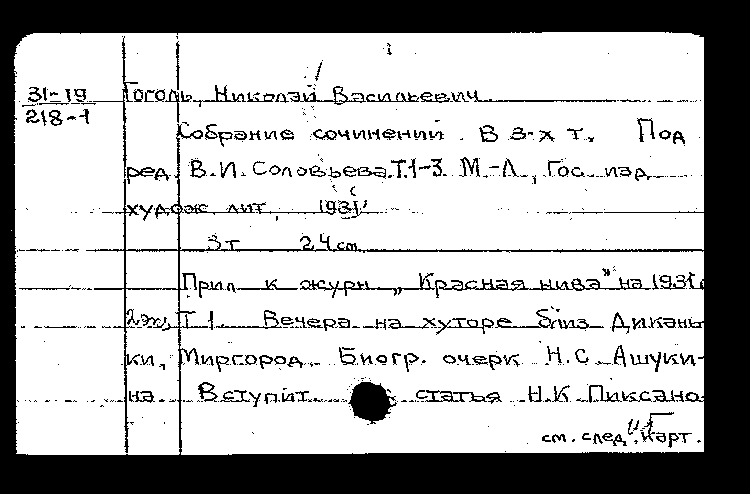 31-19 Гоголь, Николай Васильевич
218-1
Собрание сочинений. В 3-х т. Под
ред. В.И. Соловьева. Т.1-3. М.-Л., Гос. изд.
худож. лит., 1931
3 т. 24 см.
Прил. к журн. „Красная нива" на 1931 г.
2 экз. Т 1. Вечера на хуторе близ Дикань-
ки, Миргород. Биогр. очерк Н.С. Ашуки-
на. Вступит. статья Н.К. Пиксано-
см. след. карт.